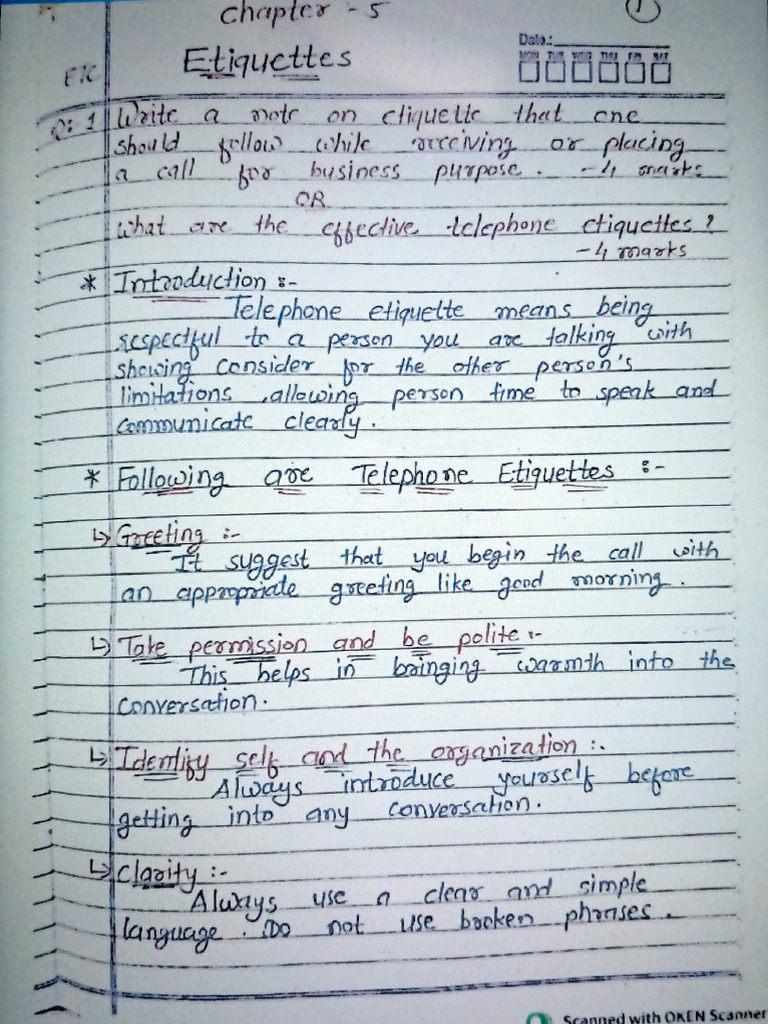 Chapter - 5
1
Etiquettes
Date:
MON TUE WED THU FRI SAT
ETC
Q: 1 Write a note on etiquette that one
should follow while receiving or placing
a call for business purpose. - 4 marks
OR
What are the effective telephone etiquettes?
- 4 marks
* Introduction :-
Telephone etiquette means being
respectful to a person you are talking with
showing consider for the other person's
limitations, allowing person time to speak and
communicate clearly.
* Following are Telephone Etiquettes :-
↳ Greeting :-
It suggest that you begin the call with
an appropriate greeting like good morning.
↳ Take permission and be polite :-
This helps in bringing warmth into the
conversation.
↳ Identify self and the organization :-
Always introduce yourself before
getting into any conversation.
↳ Clarity :-
Always use a clear and simple
language. Do not use broken phrases.
Scanned with OKEN Scanner